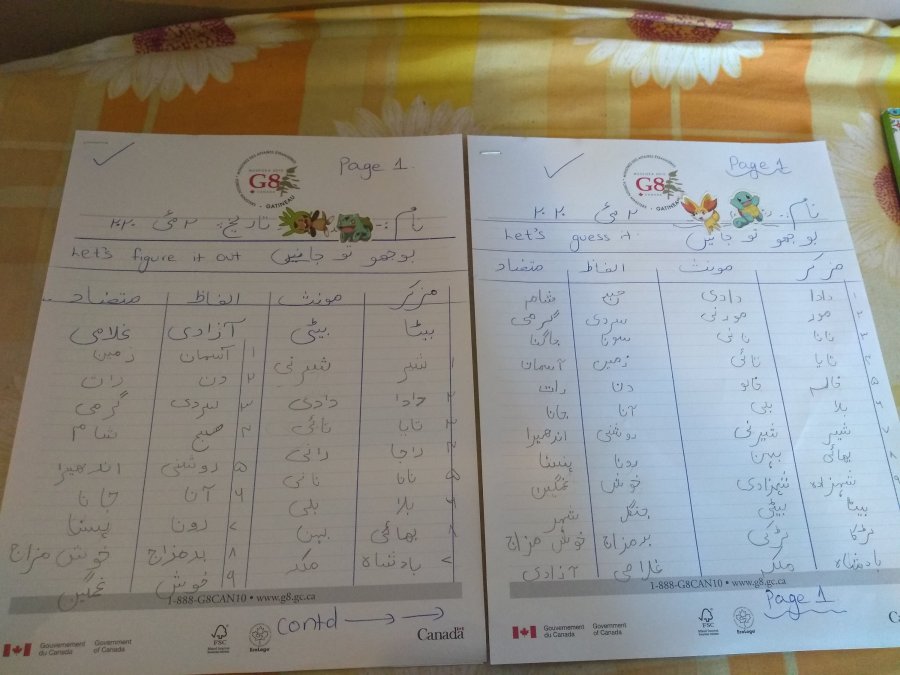 Page 1.
G8
GATINEAU
نام:۔۔ تاریخ: ۲ مئی ۲۰۲۰
Let's figure it out بوجھو تو جانیں
مزکر مونث الفاظ متضاد
بیٹا بیٹی آزادی غلامی
۱ شیر شیرنی ۱ آسمان زمین
۲ دادا دادی ۲ دن رات
۳ تایا تائی ۳ سردی گرمی
۴ راجا رانی ۴ صبح شام
۵ نانا نانی ۵ روشنی اندھیرا
۶ بلا بلی ۶ آنا جانا
بھائی بہن ۷ رونا ہنسنا
بادشاہ ملکہ ۸ بدمزاج خوش مزاج
۹ خوش غمگین
1-888-G8CAN10 • www.g8.gc.ca
contd
Gouvernement du Canada
Government of Canada
FSC
EcoLogo
Canada
Page 1
G8
GATINEAU
نام:۔۔ ۲ مئی ۲۰۲۰
Let's guess it. بوجھو تو جانیں
مزکر مونث الفاظ متضاد
۱ دادا دادی صبح شام
۲ مور مورنی سردی گرمی
۳ نانا نانی سونا جاگنا
۴ تایا تائی زمین آسمان
۵ دن رات
۶ بلا بلی آنا جانا
۷ شیر شیرنی روشنی اندھیرا
۸ بھائی بہن رونا ہنسنا
۹ شہزادہ شہزادی خوش غمگین
بیٹا بیٹی جنگل شہر
لڑکا لڑکی بدمزاج خوش مزاج
بادشاہ ملکہ غلامی آزادی
1-888-G8CAN10 • www.g8.gc.ca
Page 1
Gouvernement du Canada
Government of Canada
FSC
EcoLogo